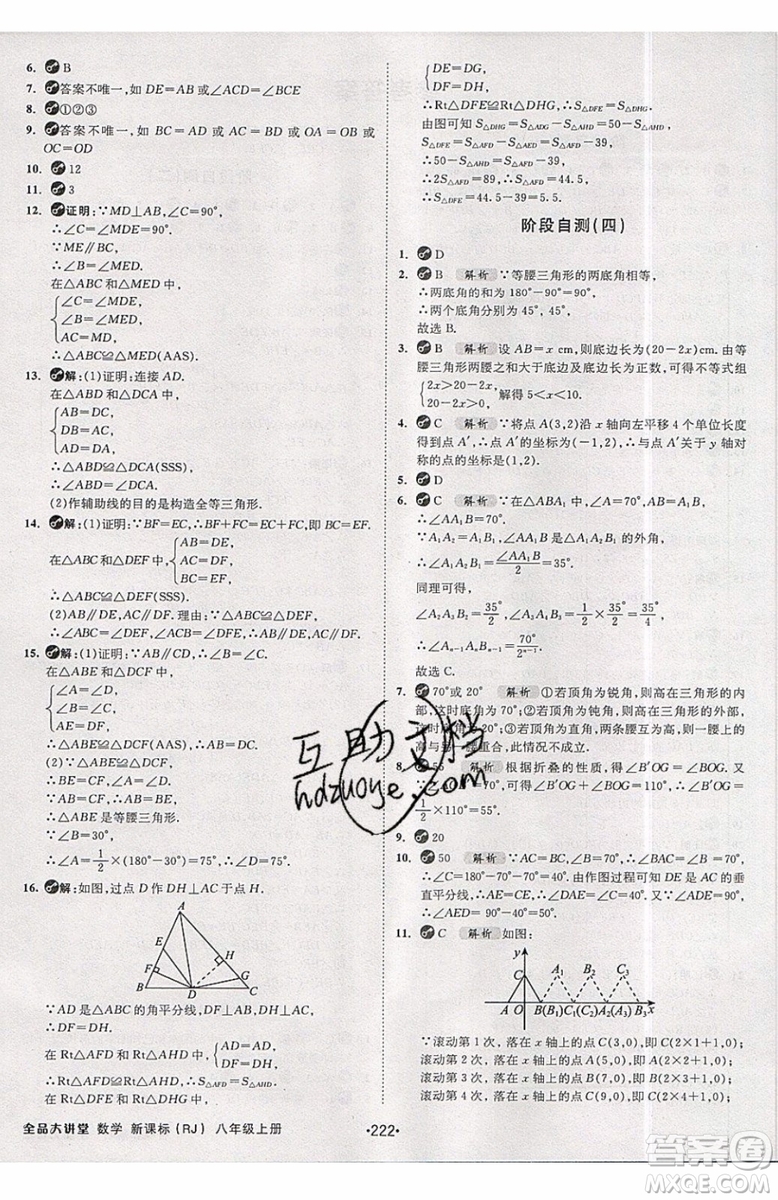 6. B
7. 答案不唯一,如 DE=AB 或∠ACD=∠BCE
8. ①②③
9. 答案不唯一,如 BC=AD 或 AC=BD 或 OA=OB 或
OC=OD
10. 12
11. 3
12. 证明:∵MD⊥AB,∠C=90°,
∴∠C=∠MDE=90°.
∵ME∥BC,
∴∠B=∠MED.
在△ABC 和△MED 中,
{∠C=∠MDE,
∠B=∠MED,
∴△ABC≌△MED(AAS).
13. 解:(1)证明:连接 AD.
在△ABD 和△DCA 中,
{AB=DC,
DB=AC,
AD=DA,
∴△ABD≌△DCA(SSS),
∴∠B=∠C.
(2)作辅助线的目的是构造全等三角形.
14. 解:(1)证明:∵BF=EC,∴BF+FC=EC+FC,即 BC=EF.
在△ABC 和△DEF 中, {AB=DE,
AC=DF,
BC=EF,
∴△ABC≌△DEF(SSS).
(2)AB∥DE,AC∥DF. 理由:∵△ABC≌△DEF,
∴∠ABC=∠DEF,∠ACB=∠DFE,∴AB∥DE,AC∥DF.
15. 解:(1)证明:∵AB∥CD,∴∠B=∠C.
在△ABE 和△DCF 中,
{∠A=∠D,
∠B=∠C,
AE=DF,
∴△ABE≌△DCF(AAS),∴AB=CD.
(2)∵△ABE≌△DCF,
∴AB=CD,BE=CF.
∵AB=CF,∴AB=BE,
∴△ABE 是等腰三角形.
∵∠B=30°,
∴∠A=1/2×(180°-30°)=75°,∴∠D=∠A=75°.
16. 解:如图,过点 D 作 DH⊥AC 于点 H.
A
E
H
F
G
B D C
∵AD 是△ABC 的角平分线,DF⊥AB,DH⊥AC,
∴DF=DH.
在 Rt△AFD 和 Rt△AHD 中, {AD=AD,
DF=DH,
∴Rt△AFD≌Rt△AHD,∴S△AFD=S△AHD.
在 Rt△DFE 和 Rt△DHG 中,
{DE=DG,
DF=DH,
∴Rt△DFE≌Rt△DHG,∴S△DFE=S△DHG.
由图可知 S△DHG=S△ADG-S△AHD=50-S△AHD,
∴S△DFE=S△AFD-S△AED=S△AFD-39,
∴50-S△AHD=S△AFD-39,
∴2S△AFD=89,∴S△AFD=44.5,
∴S△DFE=44.5-39=5.5.
阶段自测(四)
1. D
2. B 解析 ∵等腰三角形的两底角相等,
∴两底角的和为 180°-90°=90°.
∴两个底角分别为 45°,45°.
故选 B.
3. B 解析 设 AB=x cm,则底边长为(20-2x)cm,由
等腰三角形两腰之和大于底边及底边长为正数,可得不等式组
{2x>20-2x,
20-2x>0, 解得 5<x<10.
4. C 解析 ∵将点 A(3,2)沿 x 轴向左平移 4 个单位长度
得到点 A′,∴点 A′的坐标为(-1,2),∴与点 A′关于 y 轴对
称的点的坐标是(1,2).
5. D
6. C 解析 ∵在△ABA₁ 中,∠A=70°,AB=A₁B,
∴∠AA₁B=70°.
∵A₁A₂=A₁B₁,∠AA₁B 是△A₁A₂B₁ 的外角,
∴∠B₁A₂A₁=∠AA₁B/2=35°.
同理可得,
∠B₂A₃A₂=35°/2,∠B₃A₄A₃=1/2×35°/2=35°/4,
∴∠AₙAₙ₋₁Bₙ₋₁=70°/2ⁿ⁻¹.
故选 C.
7. 70°或 20° 解析 ①若顶角为锐角,则高在三角形的内
部,这时底角为 70°;②若顶角为钝角,则高在三角形的外部,
这时底角为 20°;③若顶角为直角,两条高互为垂直,两腰上的
高与另一腰重合,此情况不成立.
8. 55 解析 根据折叠的性质,得∠B′OG=∠BOG.
∵∠AOB′=70°,∴∠B′OG+∠BOG=110°,∴∠B′OG=
1/2×110°=55°.
9. 20
10. 50 解析 ∵AC=BC,∴∠B=∠CAB. 由作图过程可知 DE 是 AC 的垂
直平分线,∴AE=CE,
∴∠AED=90°-40°=50°.
11. C 解析 如图:
y
C A₁ B₂ A₃
A O B(B₁) C₁(C₂) A₂ B₃ x
∵滚动第 1 次,落在 x 轴上的点 C(3,0),即 C(2×1+1,0);
滚动第 2 次,落在 x 轴上的点 A(5,0),即 A(2×2+1,0);
滚动第 3 次,落在 x 轴上的点 B(7,0),即 B(2×3+1,0);
滚动第 4 次,落在 x 轴上的点 C(9,0),即 C(2×4+1,0);
全品大讲堂 数学 新课标(RJ) 八年级上册
·222·
互助文档
hdzuoye.com
答案圈
MXQE.COM